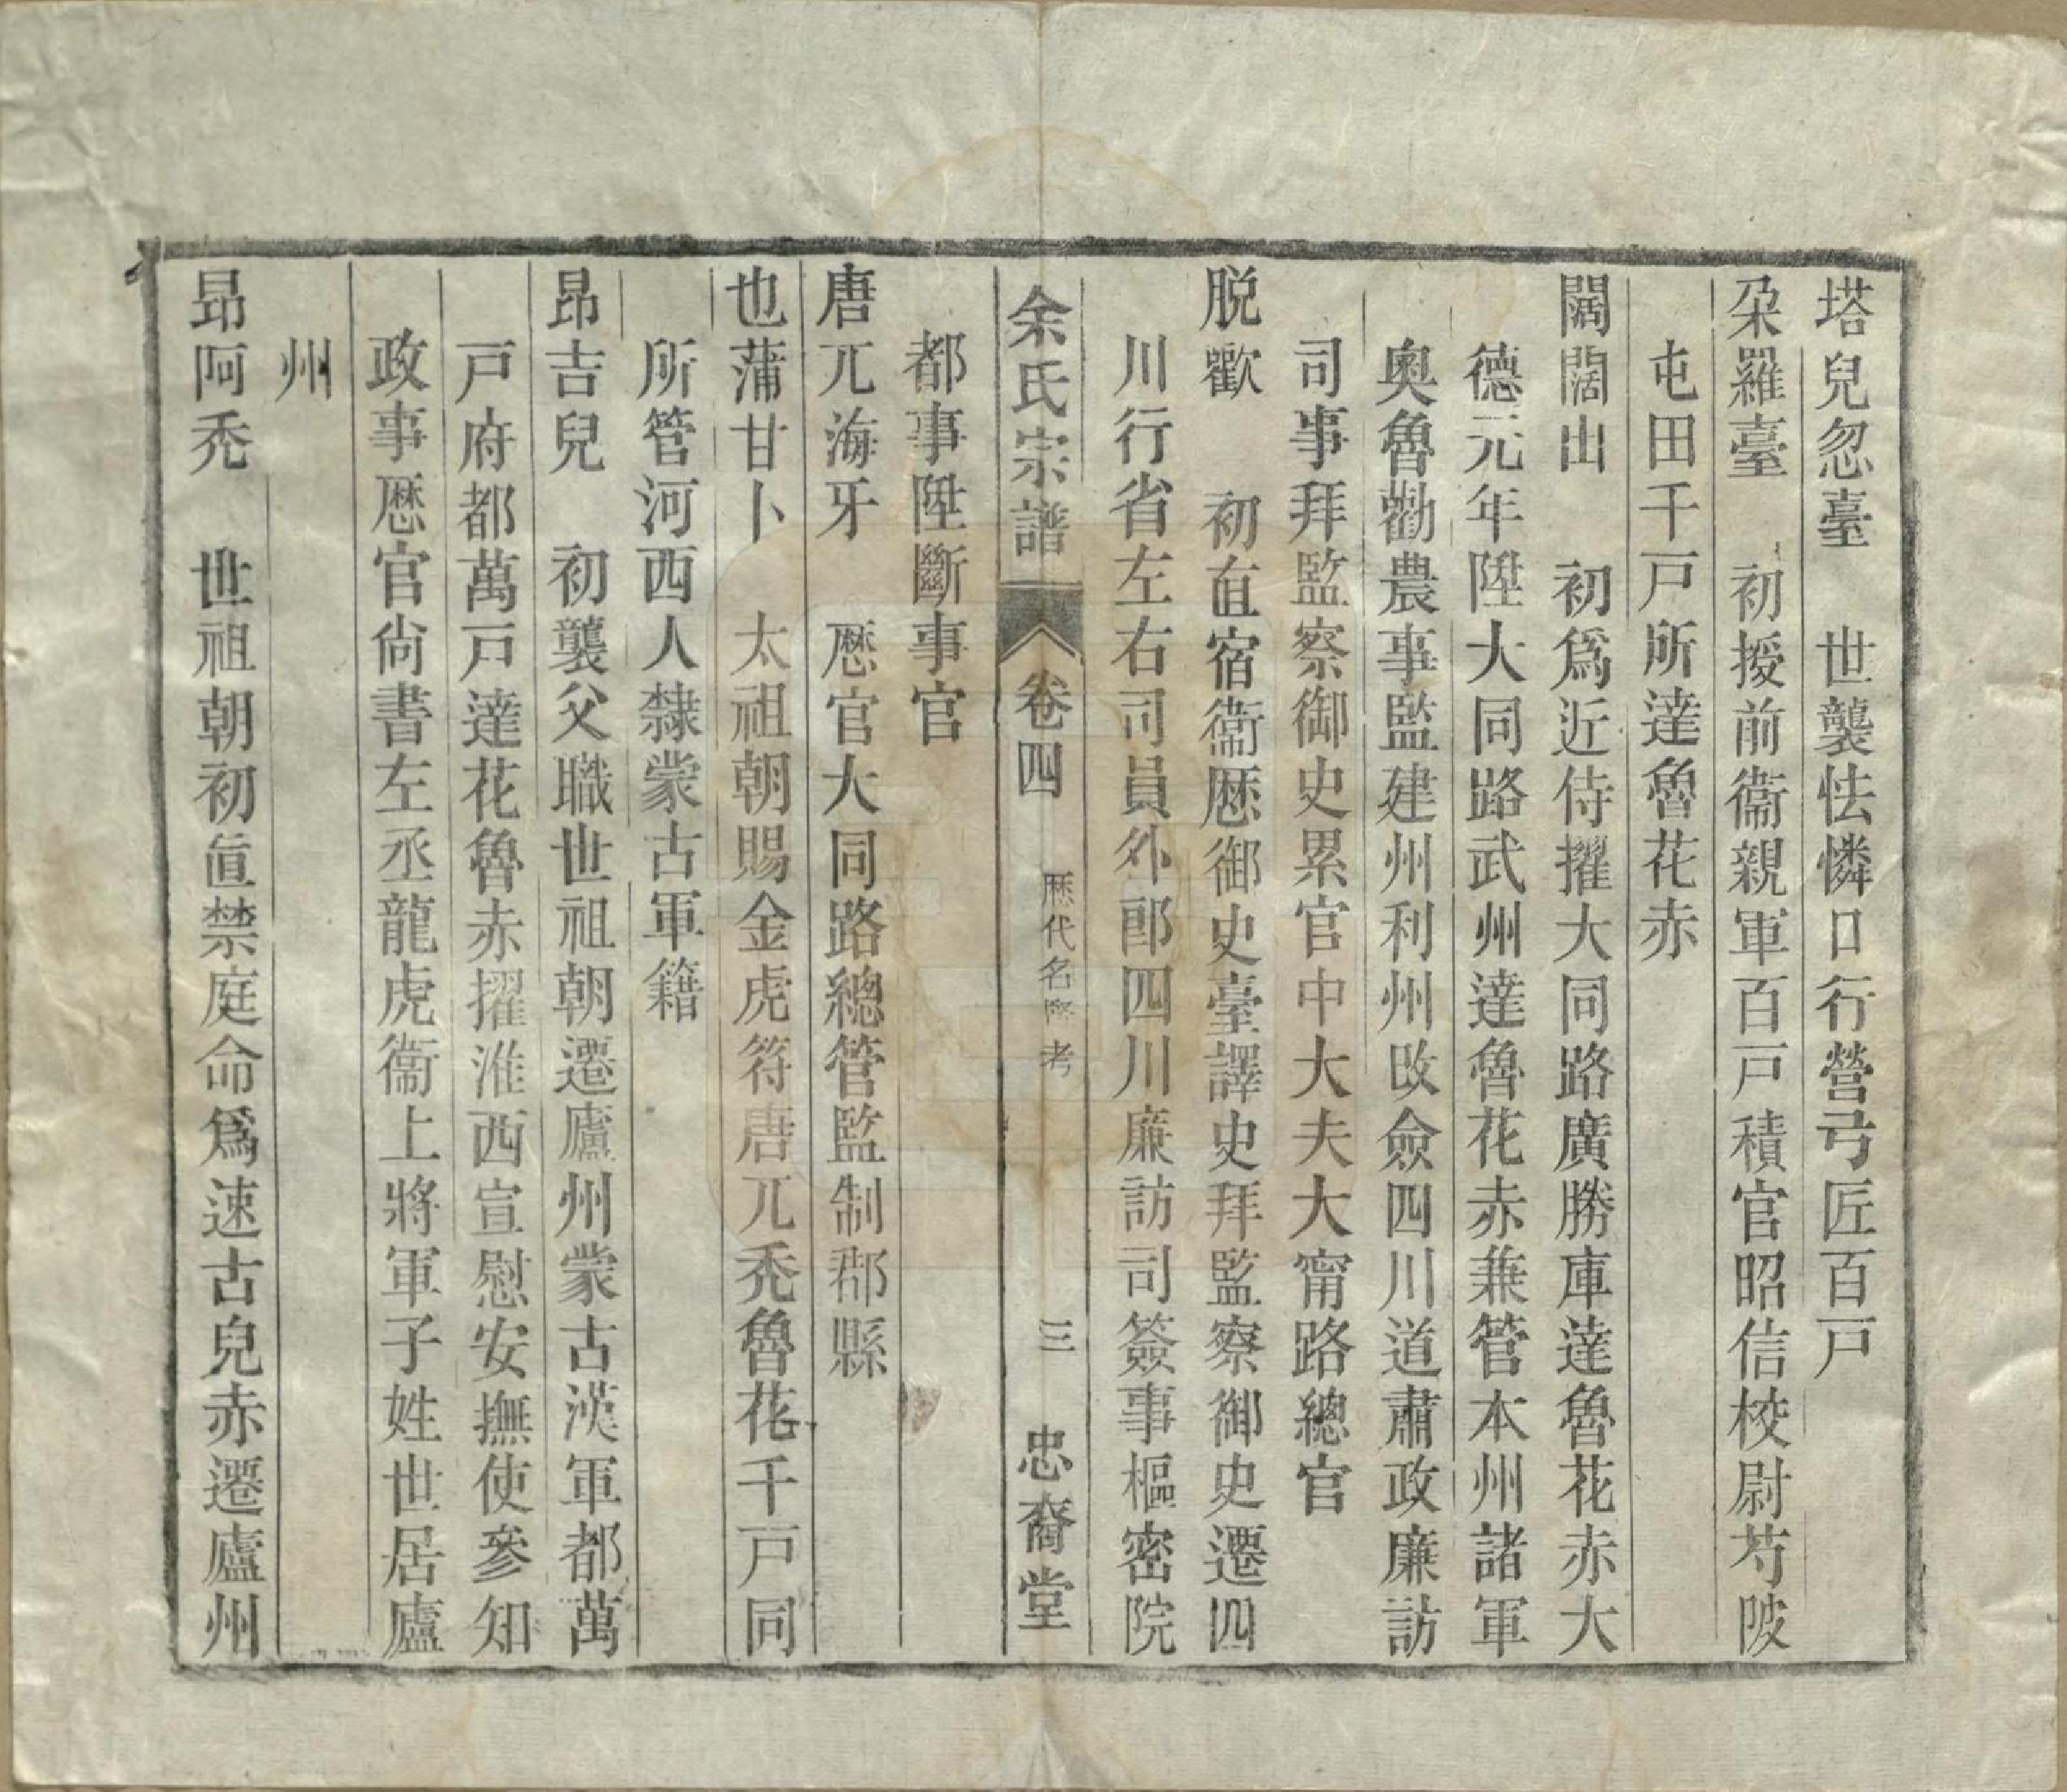 塔兒忽臺　世襲怯憐口行營弓匠百戸
朶羅臺　初授前衞親軍百戸積官昭信校尉芍陂
屯田千戸所達魯花赤
闊闊出　初爲近侍擢大同路廣勝庫達魯花赤大
德元年陞大同路武州達魯花赤兼管本州諸軍
奧魯勸農事監建州利州改僉四川道肅政廉訪
司事拜監察御史累官中大夫大甯路總官
脱歡　初直宿衞歴御史臺譯史拜監察御史遷四
川行省左右司員外郎四川廉訪司簽事樞密院
余氏宗譜　卷四　歴代名賢考　三　忠裔堂
都事陞斷事官
唐兀海牙　歴官大同路總管監制郡縣
也蒲甘卜　太祖朝賜金虎符唐兀禿魯花千戸同
所管河西人隸蒙古軍籍
昻吉兒　初襲父職世祖朝遷廬州蒙古漢軍都萬
戸府都萬戸達花魯赤擢淮西宣慰安撫使參知
政事歴官尙書左丞龍虎衞上將軍子姓世居廬
州
昻阿禿　世祖朝初直禁庭命爲速古兒赤遷廬州